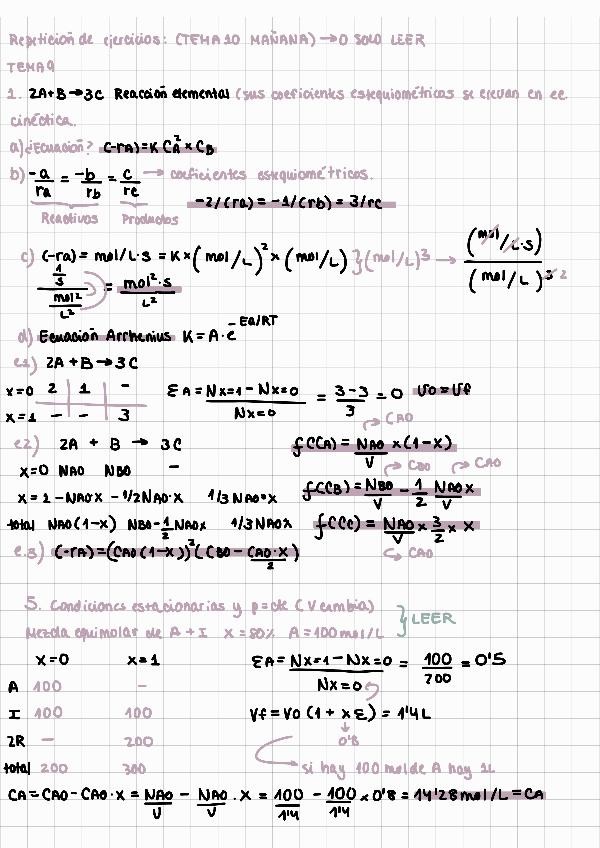 Repetición de ejercicios: (TEMA 10 MAÑANA) → O SOLO LEER
TEMA 9
1. 2A+B → 3C Reacción elemental (sus coeficientes estequiométricos se elevan en ec.
cinéctica.
a) ¿Ecuación? (-rA) = K CA² × CB
b) -a/ra = -b/rb = c/rc → coeficientes estequiométricos.
Reactivos Productos -2/(ra) = -1/(rb) = 3/rc
c) (-ra) = mol/L·s = K × (mol/L)² × (mol/L) } (mol/L)³ → (mol/L·s)/(mol/L)³ ²
(1/s)/(mol²/L²) = mol²·s/L²
d) Ecuación Arrhenius K = A·e^-Ea/RT
e.1) 2A + B → 3C
x=0 2 1 - εA = (Nx=1 - Nx=0)/(Nx=0) = (3-3)/3 = 0 V0 = Vf
x=1 - - 3
e.2) 2A + B → 3C f(CA) = NA0/V × (1-x) → CA0
x=0 NA0 NB0 - f(CB) = NB0/V - 1/2 NA0x/V → CB0 → CA0
x=1 -NA0·x -1/2NA0·x 1/3 NA0·x
total NA0(1-x) NB0-1/2NA0x 1/3 NA0x f(CC) = NA0/V × 3/2 × x → CA0
e.3) (-rA) = (CA0(1-x))² (CB0 - CA0·x/2)
5. Condiciones estacionarias y p=cte (V cambia) } LEER
Mezcla equimolar de A + I X=80% A=100mol/L
x=0 x=1 εA = (Nx=1 - Nx=0)/(Nx=0) = 100/200 = 0'5
A 100 -
I 100 100 Vf = V0 (1 + xε) = 1'4 L
2R - 200 0'8
total 200 300 si hay 100 mol de A hay 1L
CA = CA0 - CA0·x = NA0/V - NA0/V · x = 100/1'4 - 100/1'4 × 0'8 = 14'28 mol/L = CA